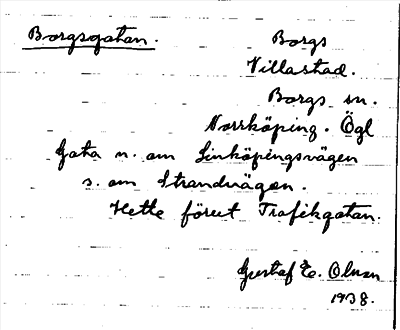 Borgsgatan. Borgs
Villastad.
Borgs sn.
Norrköping. Ögl
Gata n. om Linköpingsvägen
s. om Strandvägen.
Hette förut Trafikgatan.
Gustaf E. Olsson
1938.